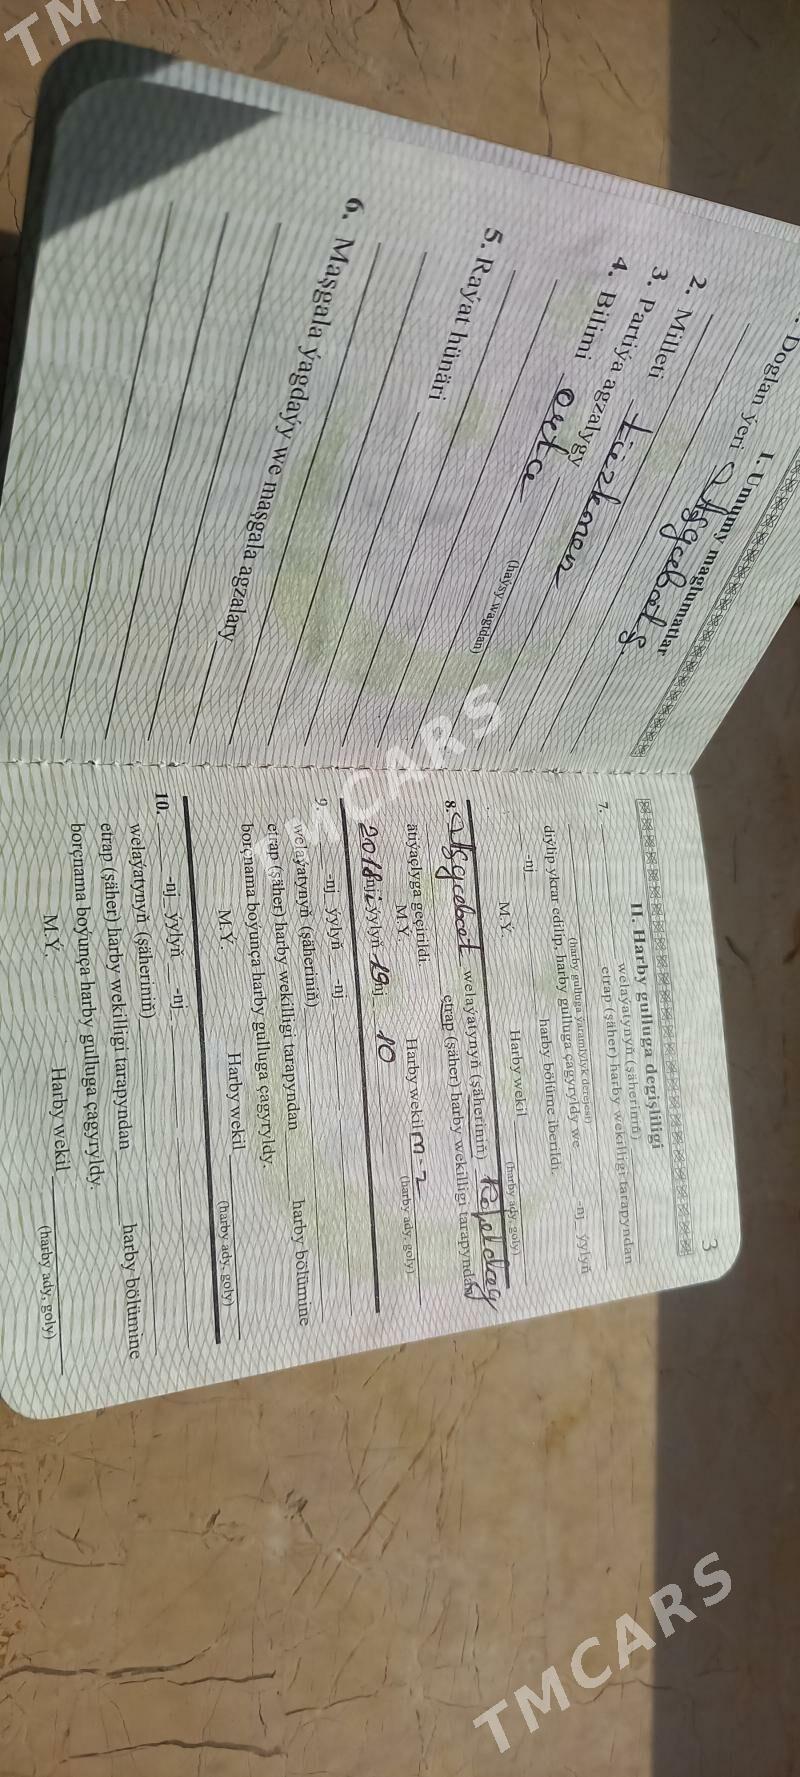 I. Umumy maglumatlar
Doglan ýeri Aşgabat ş.
2. Milleti türkmen
3. Partiýa agzalygy
(haýsy wagtdan)
4. Bilimi orta
5. Raýat hünäri
6. Maşgala ýagdaýy we maşgala agzalary
3
II. Harby gulluga degişliligi
7. welaýatynyň (şäheriniň)
etrap (şäher) harby wekilligi tarapyndan
(harby gulluga ýaramlylyk derejesi)
diýlip ykrar edilip, harby gulluga çagyryldy we -nj ýylyň
-nj harby bölüme iberildi.
M.Ý. Harby wekil
(harby ady, goly)
8. Aşgabat welaýatynyň (şäheriniň) Köpetdag
etrap (şäher) harby wekilligi tarapyndan
ätiýaçlyga geçirildi.
M.Ý. Harby wekil m-z
(harby ady, goly)
2018 nji ýylyň 19 nj 10
9. -nj ýylyň -nj
welaýatynyň (şäheriniň)
etrap (şäher) harby wekilligi tarapyndan harby bölümine
borçnama boýunça harby gulluga çagyryldy.
M.Ý. Harby wekil
(harby ady, goly)
10. -nj ýylyň -nj
welaýatynyň (şäheriniň)
etrap (şäher) harby wekilligi tarapyndan harby bölümine
borçnama boýunça harby gulluga çagyryldy.
M.Ý. Harby wekil
(harby ady, goly)
TMCARS
TMCARS